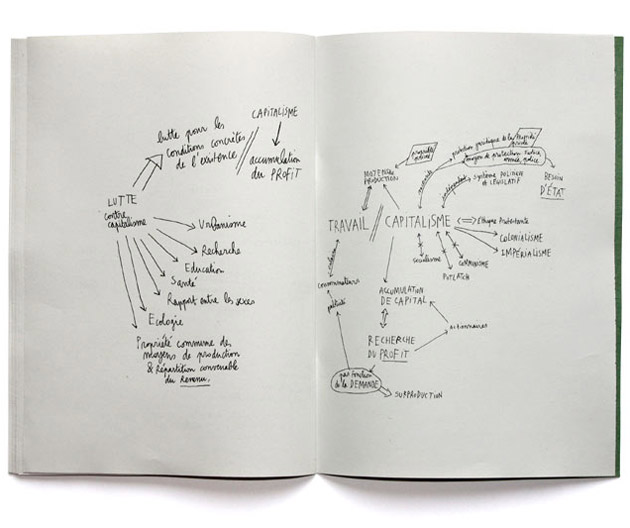 CAPITALISME
lutte pour les
conditions concrètes
de l'existence
accumulation
du PROFIT
LUTTE
contre
capitalisme
Urbanisme
Recherche
Education
Santé
Rapport entre les sexes
Ecologie
Propriété commune des
moyens de production
& Répartition convenable
du Revenu.
propriété
privée
MOYENS DE
PRODUCTION
protection juridique de la propriété
privée
moyens de protection
armée, police
système POLITIQUE
et LÉGISLATIF
BESOIN
D'ÉTAT
TRAVAIL // CAPITALISME
Ethique Protestante
COLONIALISME
IMPÉRIALISME
socialisme
communisme
POTLATCH
consommateurs
publicité
ACCUMULATION
DE CAPITAL
actionnaires
RECHERCHE
DU PROFIT
pas fonction
de la DEMANDE
SURPRODUCTION